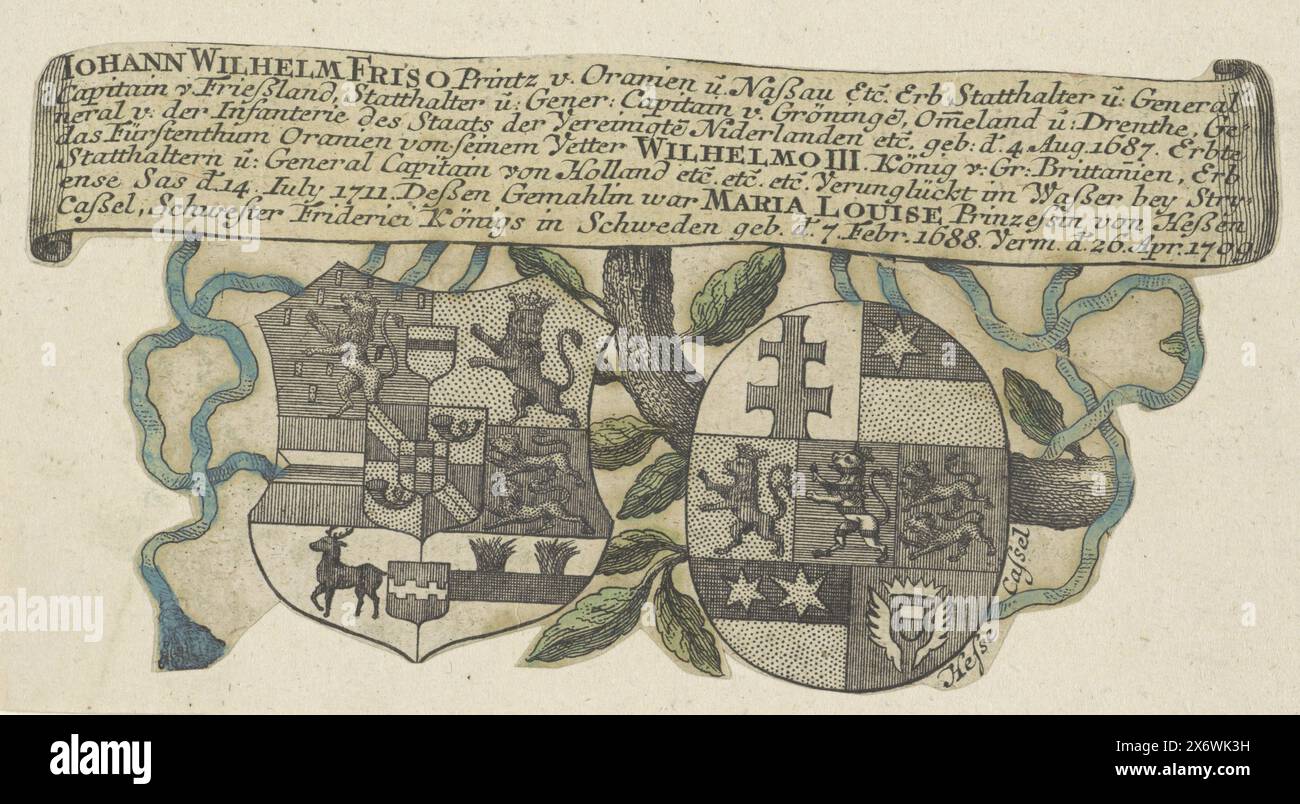 IOHANN WILHELM FRISO Printz v. Oranien ū. Naßau Etc. Erb Statthalter ū: General
Capitain v Frießland, Statthalter ū: Gener: Capitain v. Gröningē, Om̄eland ū: Drenthe, Ge=
neral v: der Infanterie des Staats der Vereinigtē Niderlanden etc. geb: d. 4 Aug. 1687. Erbte
das Fürstenthum Oranien von seinem Vetter WILHELMO III. König v. Gr: Brittan̄ien, Erb
Statthaltern ū: General Capitain von Holland etc. etc. etc. Verunglückt im Waßer bey Stry=
ense Sas d. 14. Iuly 1711. Deßen Gemahlin war MARIA LOUISE Prinzeßin von Heßen
Caßel, Schwester Friderici Königs in Schweden geb. d. 7. Febr. 1688. Verm. d. 26. Apr. 1709
Heſse Caſsel
alamy
Image ID: 2X6WK3H
www.alamy.com